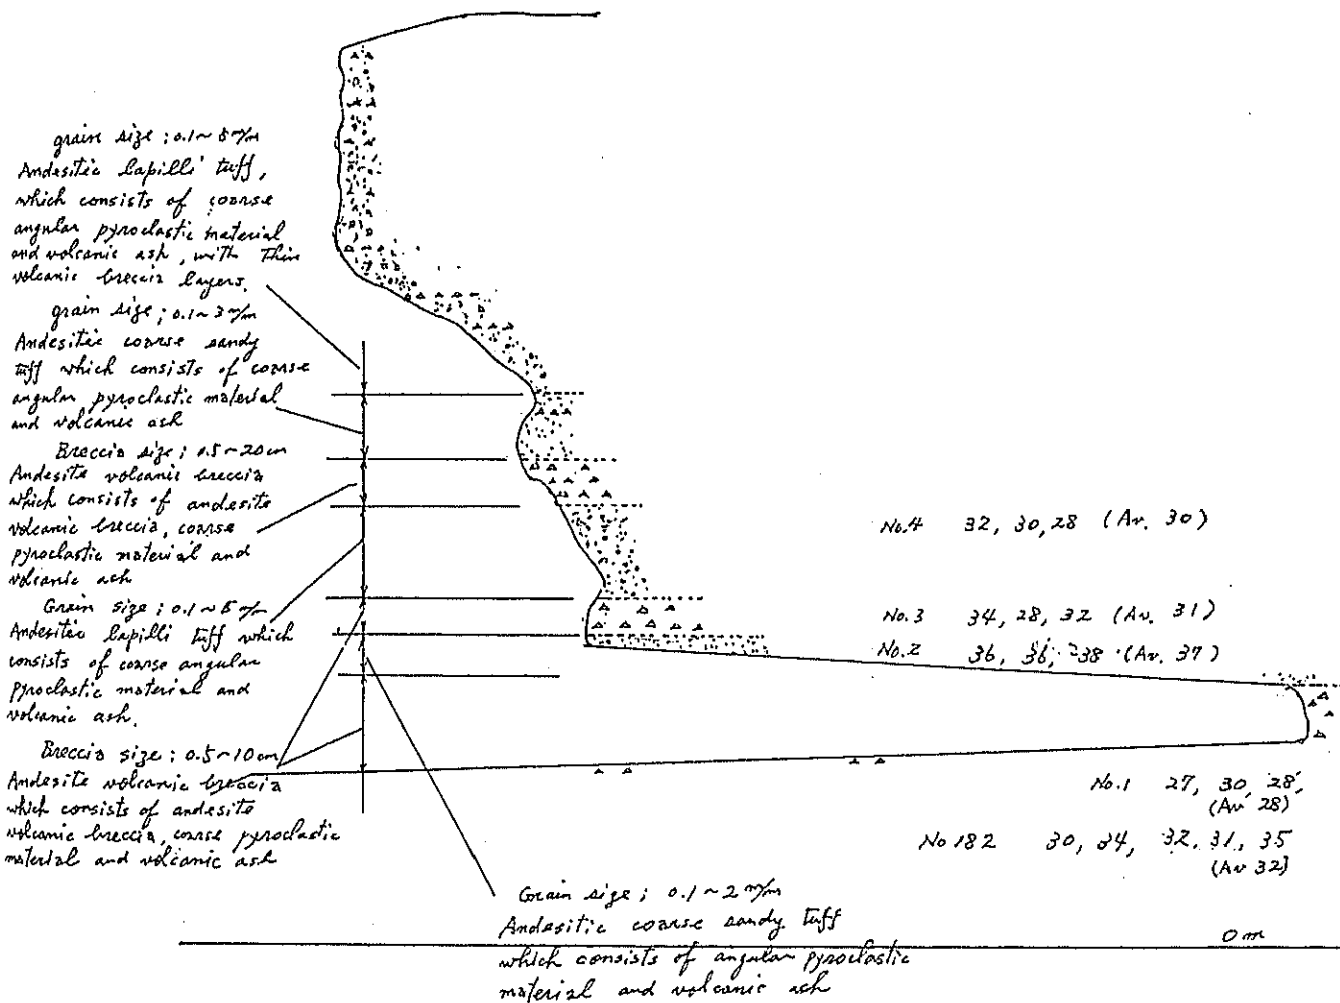 grain size ; 0.1~5 m/m
Andesitic lapilli tuff,
which consists of coarse
angular pyroclastic material
and volcanic ash, with thin
volcanic breccia layers.
grain size ; 0.1~3 m/m
Andesitic coarse sandy
tuff which consists of coarse
angular pyroclastic material
and volcanic ash
Breccia size ; 0.5~20 cm
Andesite volcanic breccia
which consists of andesite
volcanic breccia, coarse
pyroclastic material and
volcanic ash
Grain size ; 0.1~5 m/m
Andesitic lapilli tuff which
consists of coarse angular
pyroclastic material and
volcanic ash.
Breccia size ; 0.5~10 cm
Andesite volcanic breccia
which consists of andesite
volcanic breccia, coarse pyroclastic
material and volcanic ash
Grain size ; 0.1~2 m/m
Andesitic coarse sandy tuff
which consists of angular pyroclastic
material and volcanic ash
No.4 32, 30, 28 (Av. 30)
No.3 34, 28, 32 (Av. 31)
No.2 36, 36, 38 (Av. 37)
No.1 27, 30, 28,
(Av 28)
No 182 30, 34, 32, 31, 35
(Av 32)
0 m